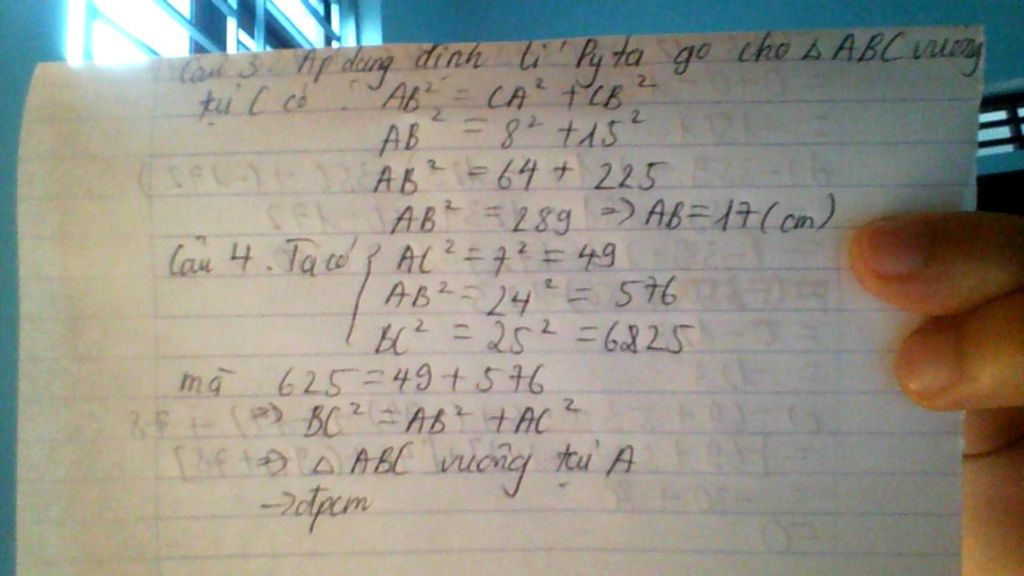 Câu 3. Áp dụng định lí Pytago cho △ABC vuông
tại C có: AB² = CA² + CB²
AB² = 8² + 15²
AB² = 64 + 225
AB² = 289 => AB = 17 (cm)
Câu 4. Ta có { AC² = 7² = 49
AB² = 24² = 576
BC² = 25² = 6825
mà 625 = 49 + 576
=> BC² = AB² + AC²
=> △ABC vuông tại A
-> đpcm